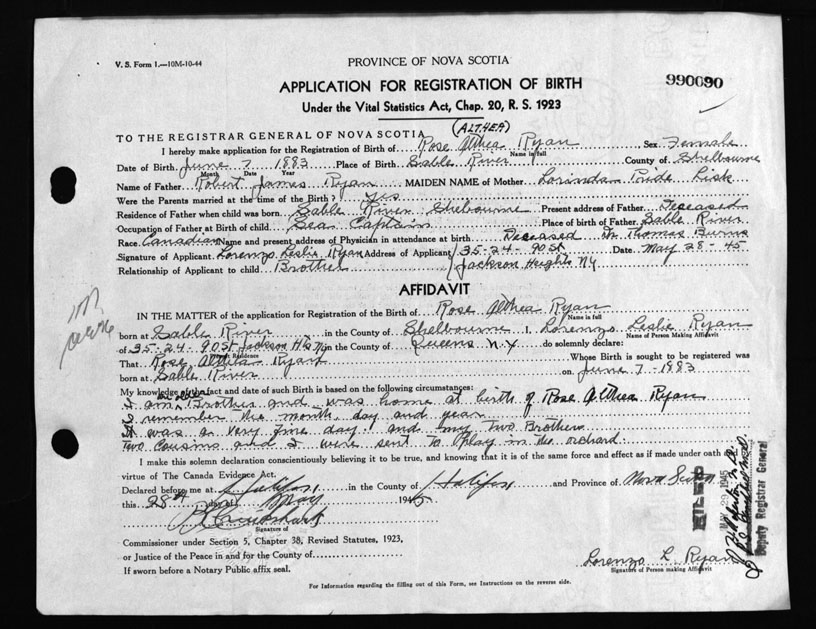 V. S. Form 1.—10M-10-44
PROVINCE OF NOVA SCOTIA
990090
APPLICATION FOR REGISTRATION OF BIRTH
Under the Vital Statistics Act, Chap. 20, R. S. 1923
(ALTHEA)
TO THE REGISTRAR GENERAL OF NOVA SCOTIA
I hereby make application for the Registration of Birth of Rose Althea Ryan Sex Female
Name in full
Date of Birth June 7 1883 Place of Birth Sable River County of Shelbourne
Month Date Year
Name of Father Robert James Ryan MAIDEN NAME of Mother Lorinda Pride Lisk
Were the Parents married at the time of the Birth? Yes
Residence of Father when child was born Sable River Shelbourne Present address of Father Deceased
Occupation of Father at Birth of child Sea Captain Place of birth of Father Sable River
Race Canadian Name and present address of Physician in attendance at birth Deceased Dr Thomas Burns
Signature of Applicant Lorenzo Leslie Ryan Address of Applicant 35-24-90 St Date May 28-45
Relationship of Applicant to child Brother Jackson Heights NY
AFFIDAVIT
IN THE MATTER of the application for Registration of the Birth of Rose Althea Ryan
Name in full
born at Sable River in the County of Shelbourne I, Lorenzo Leslie Ryan
Name of Person Making Affidavit
of 35-24-90 St Jackson Hts Ny in the County of Queens N.Y do solemnly declare:
Present Residence
That Rose Althea Ryan Whose Birth is sought to be registered was
born at Sable River on June 7-1883
My knowledge of the fact and date of such Birth is based on the following circumstances:
I am an older Brother and was home at birth of Rose Althea Ryan
I remember the month, day and year
It was a very fine day and my two Brothers
two Cousins and I were sent to play in the orchard.
I make this solemn declaration conscientiously believing it to be true, and knowing that it is of the same force and effect as if made under oath by
virtue of The Canada Evidence Act.
Declared before me at Halifax in the County of Halifax and Province of Nova Scotia
this 28th day of May 1945
Signature of
Commissioner under Section 5, Chapter 38, Revised Statutes, 1923,
or Justice of the Peace in and for the County of
If sworn before a Notary Public affix seal.
Lorenzo L. Ryan
Signature of Person making Affidavit
For Information regarding the filling out of this Form, see Instructions on the reverse side.
FILED
29 1945
Deputy Registrar General